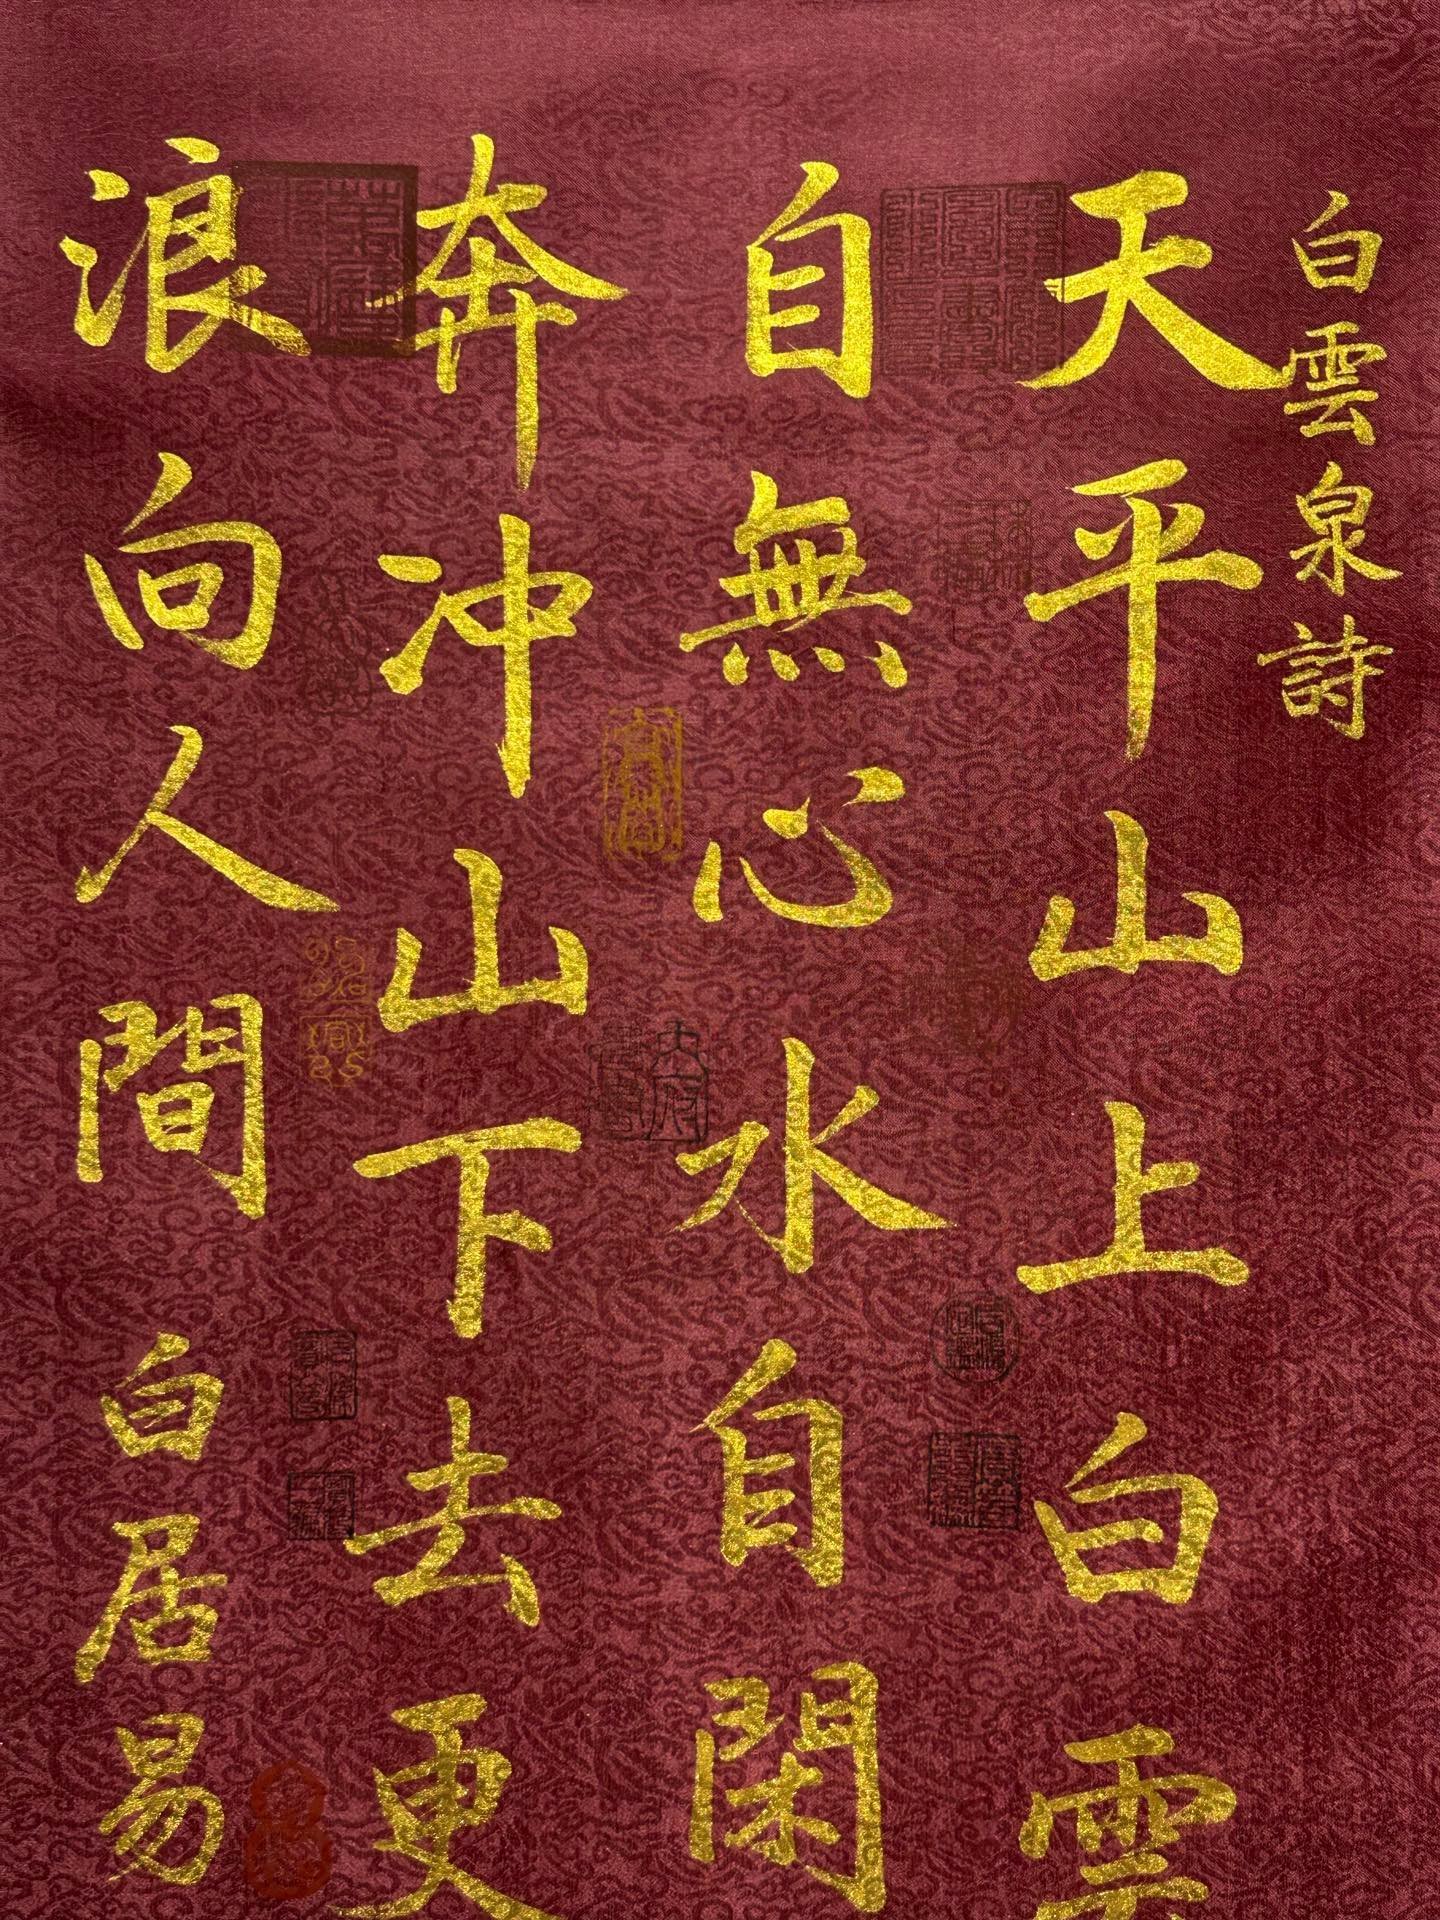 白雲泉詩
天平山上白雲
自無心水自閑
奔冲山下去更
浪向人間
白居易